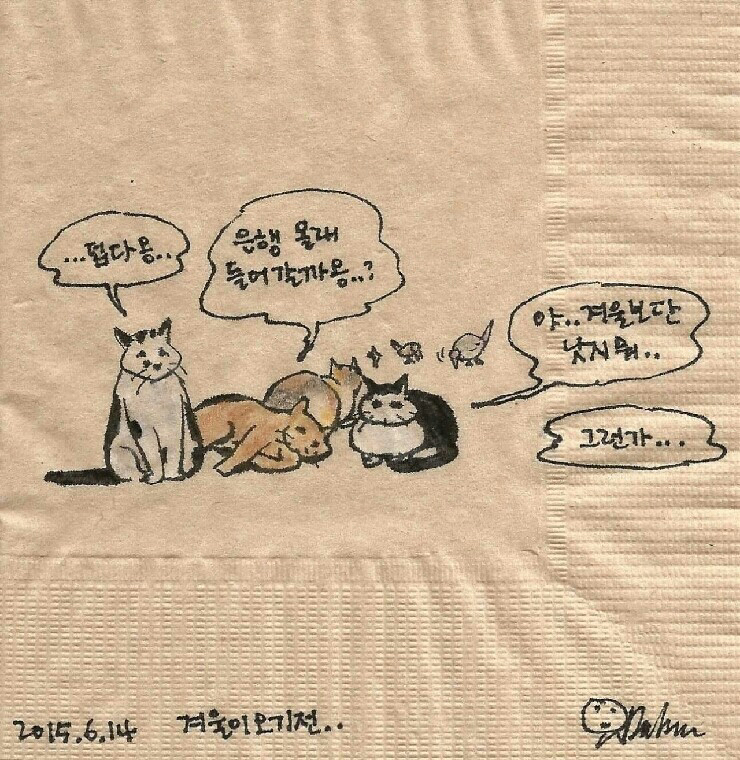 ...덥다옹..
은행 몰래
들어갈까옹..?
야..겨울보단
낫지뭐..
그런가...
2015.6.14 겨울이오기전..